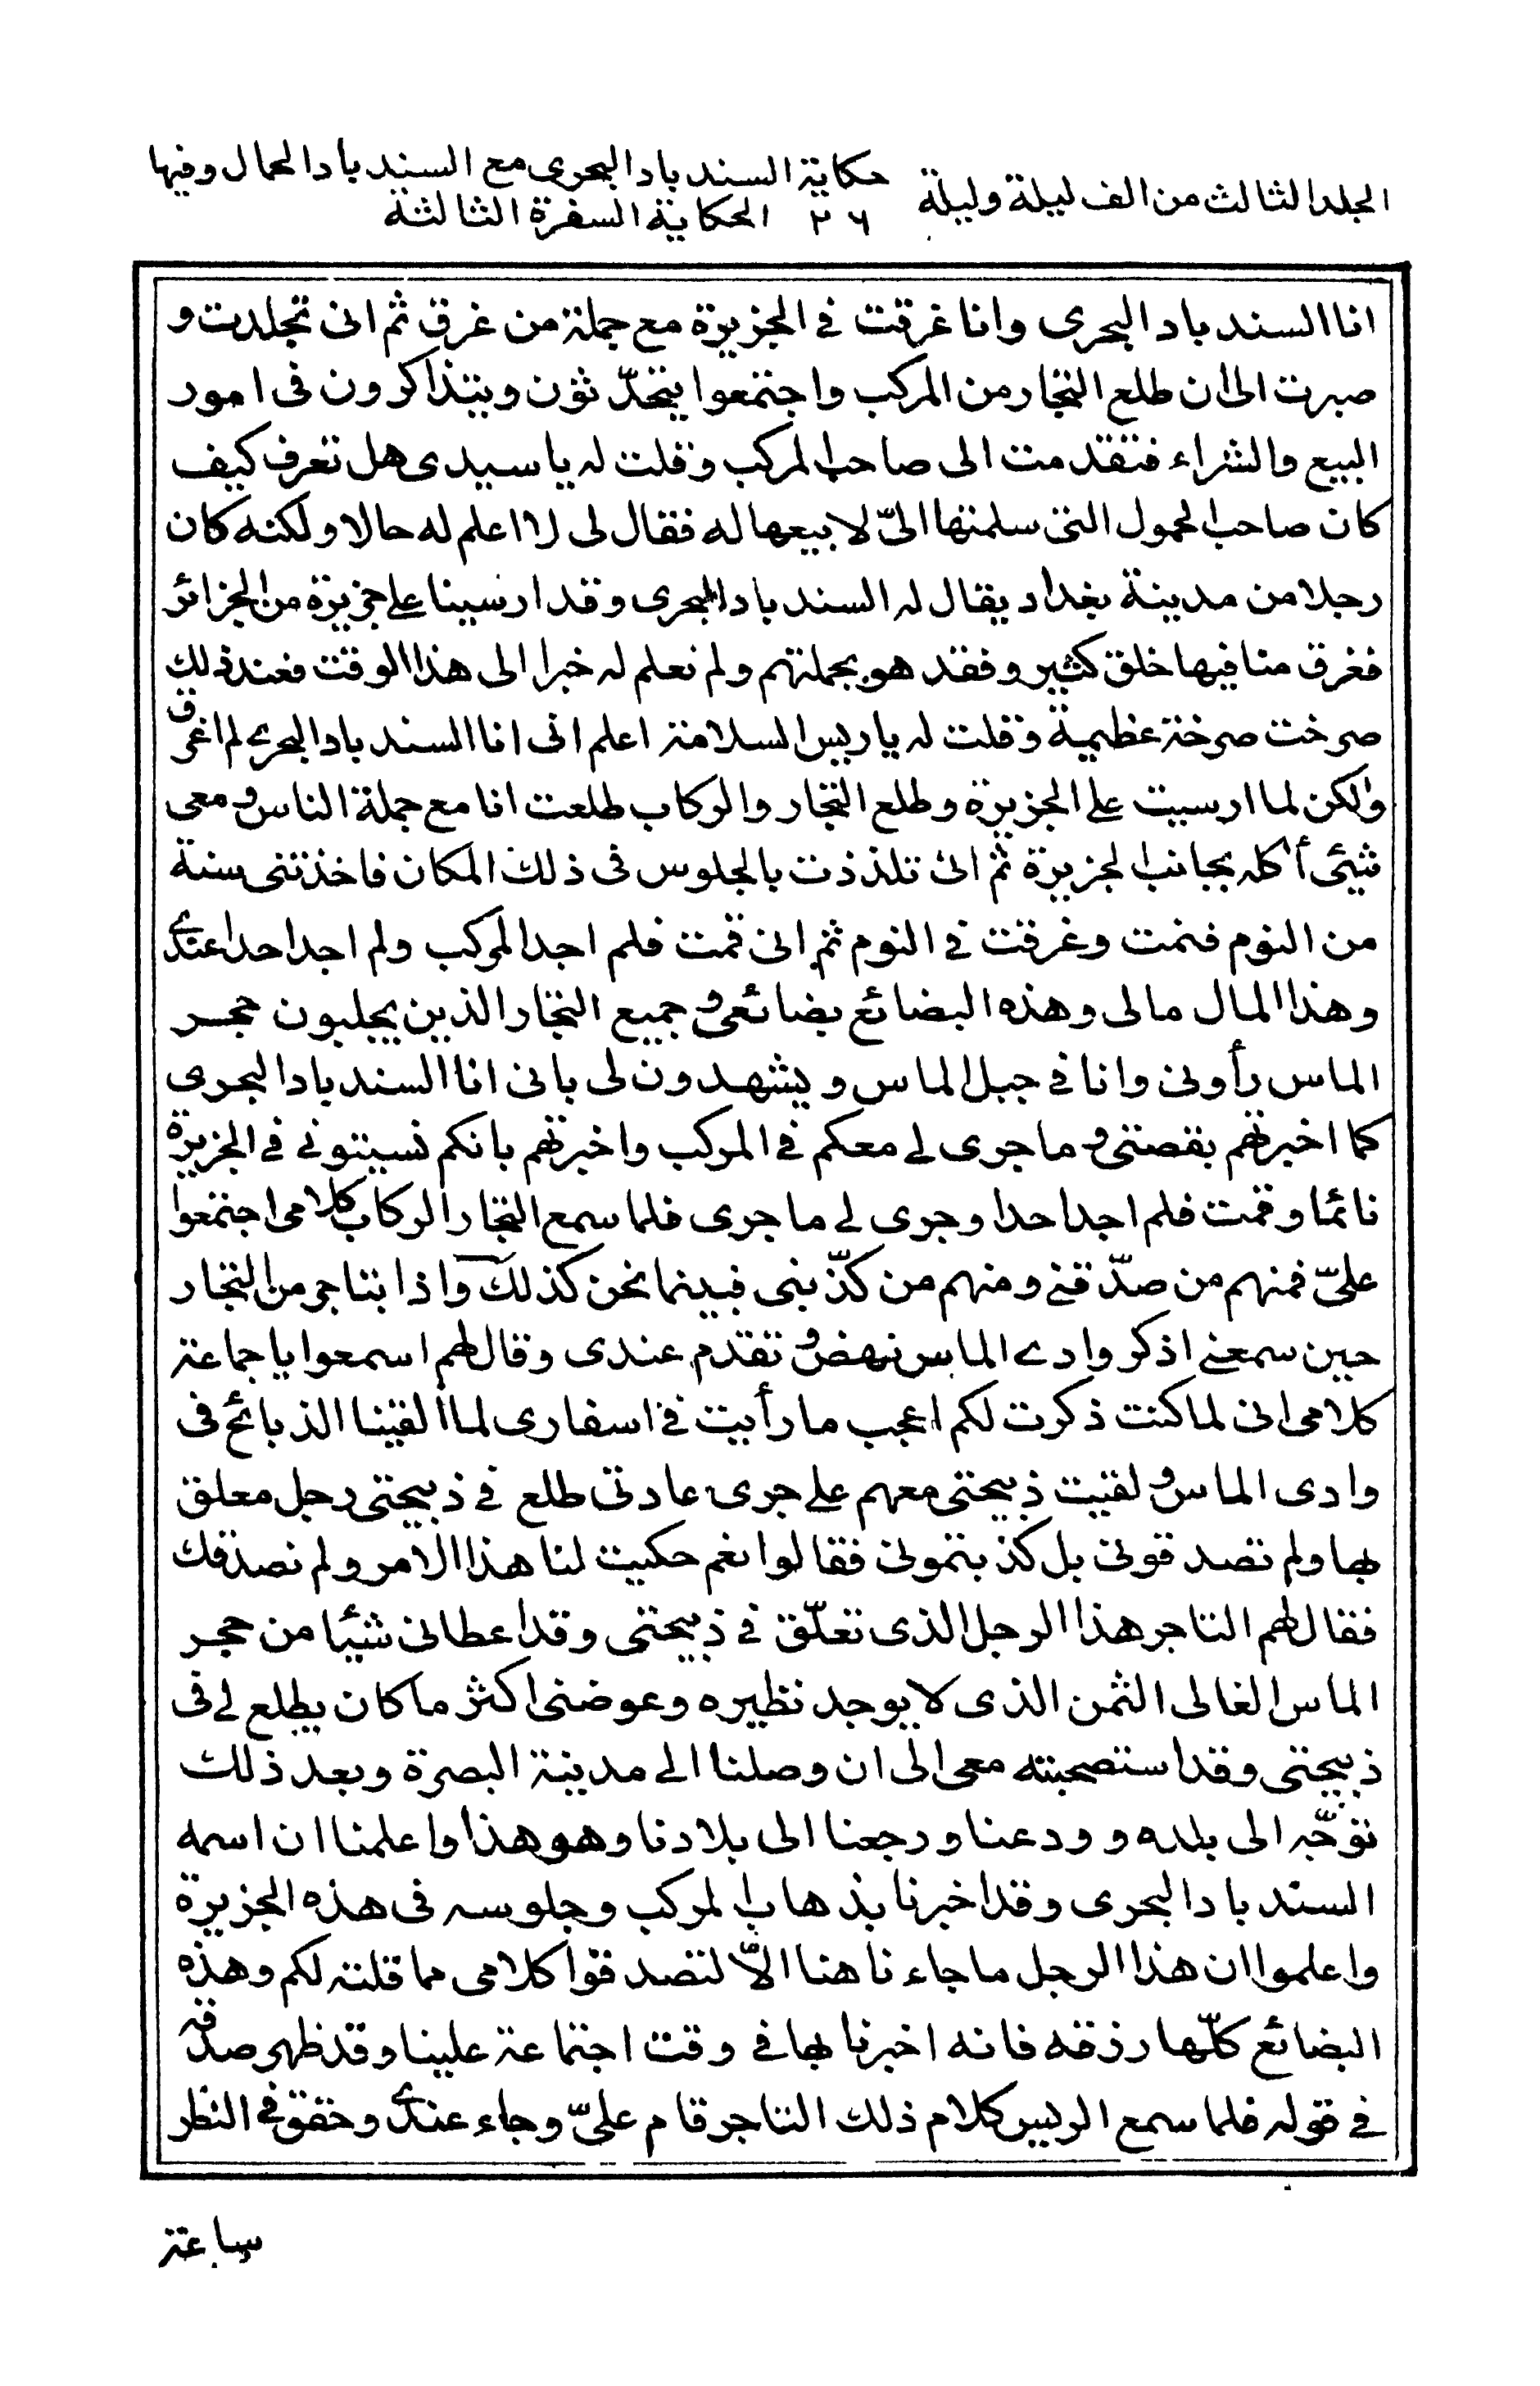 الجلد الثالث من الف ليلة وليلة
حكاية السندباد البحرى مع السندباد الحمال وفيها
٢٦ الحكاية السفرة الثالثة
انا السندباد البحرى وانا غرقت فى الجزيرة مع جملة من غرق ثم انى تجلدت و
صبرت الى ان طلع التجار من المركب واجتمعوا يتحدّثون ويتذاكرون فى امور
البيع والشراء فتقدمت الى صاحب المركب وقلت له يا سيدى هل تعرف كيف
كان صاحب الحمول التى سلمتها الىّ لابيعها له فقال لى لا اعلم له حالا ولكنه كان
رجلا من مدينة بغداد يقال له السندباد البحرى وقد ارسينا على جزيرة من الجزائر
فغرق منا فيها خلق كثير وفقد هو بجملتهم ولم نعلم له خبرا الى هذا الوقت فعند ذلك
صرخت صرخة عظيمة وقلت له يا ريس السلامة اعلم انى انا السندباد البحرى لم اغرق
ولكن لما ارسيت على الجزيرة وطلع التجار والركاب طلعت انا مع جملة الناس ومعى
شيئى أكله بجانب الجزيرة ثم انى تلذذت بالجلوس فى ذلك المكان فاخذتنى سنة
من النوم فنمت وغرقت فى النوم ثم انى قمت فلم اجد المركب ولم اجد احدا عندى
وهذا المال مالى وهذه البضائع بضائعى وجميع التجار الذين يجلبون حجر
الماس رأونى وانا فى جبل الماس ويشهدون لى بانى انا السندباد البحرى
كما اخبرتهم بقصتى وما جرى لى معكم فى المركب واخبرتهم بانكم نسيتونى فى الجزيرة
نائما وقمت فلم اجد احدا وجرى لى ما جرى فلما سمع التجار الركاب كلامى اجتمعوا
علىّ فمنهم من صدّقنى ومنهم من كذّبنى فبينما نحن كذلك واذا بتاجر من التجار
حين سمعنى اذكر وادى الماس نهض وتقدم عندى وقال لهم اسمعوا يا جماعة
كلامى انى لما كنت ذكرت لكم اعجب ما رأيت فى اسفارى لما ألقينا الذبائح فى
وادى الماس ولقيت ذبيحتى معهم على جرى عادتى طلع فى ذبيحتى رجل معلق
بها ولم تصدقونى بل كذبتمونى فقالوا نعم حكيت لنا هذا الامر ولم نصدقك
فقال لهم التاجر هذا الرجل الذى تعلّق فى ذبيحتى وقد اعطانى شيئا من حجر
الماس الغالى الثمن الذى لا يوجد نظيره وعوضنى اكثر ما كان يطلع لى فى
ذبيحتى وقد استصحبته معى الى ان وصلنا الى مدينة البصرة وبعد ذلك
توجّه الى بلده وودعنا ورجعنا الى بلادنا وهو هذا واعلمنا ان اسمه
السندباد البحرى وقد اخبرنا بذهاب المركب وجلوسه فى هذه الجزيرة
واعلموا ان هذا الرجل ما جاءنا هنا الّا لتصدقوا كلامى مما قلته لكم وهذه
البضائع كلّها رزقه فانه اخبرنا بها فى وقت اجتماعة علينا وقد ظهر صدقه
فى قوله فلما سمع الريس كلام ذلك التاجر قام علىّ وجاء عندى وحقق فى النظر
ساعة